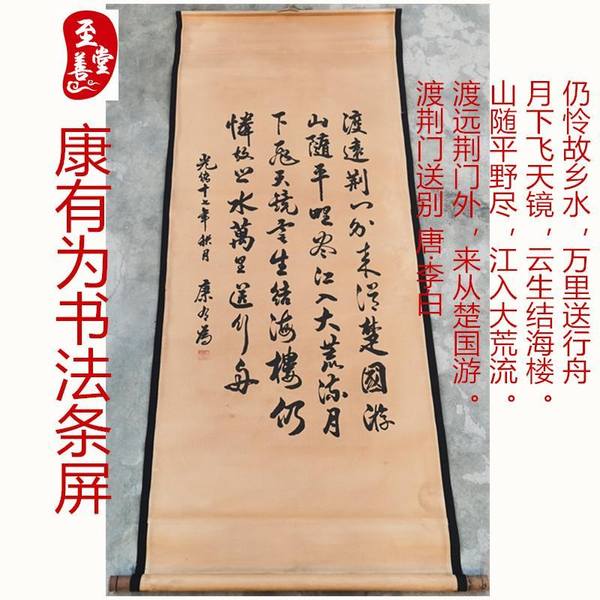 至善堂
康有为书法条屏
渡遠荆门外来從楚國游
山随平野尽江入大荒流月
下飛天镜雲生结海樓仍
憐故乡水萬里送行舟
光绪十七年秋月 康有為
渡荆门送别 唐·李白
渡远荆门外，来从楚国游。
山随平野尽，江入大荒流。
月下飞天镜，云生结海楼。
仍怜故乡水，万里送行舟